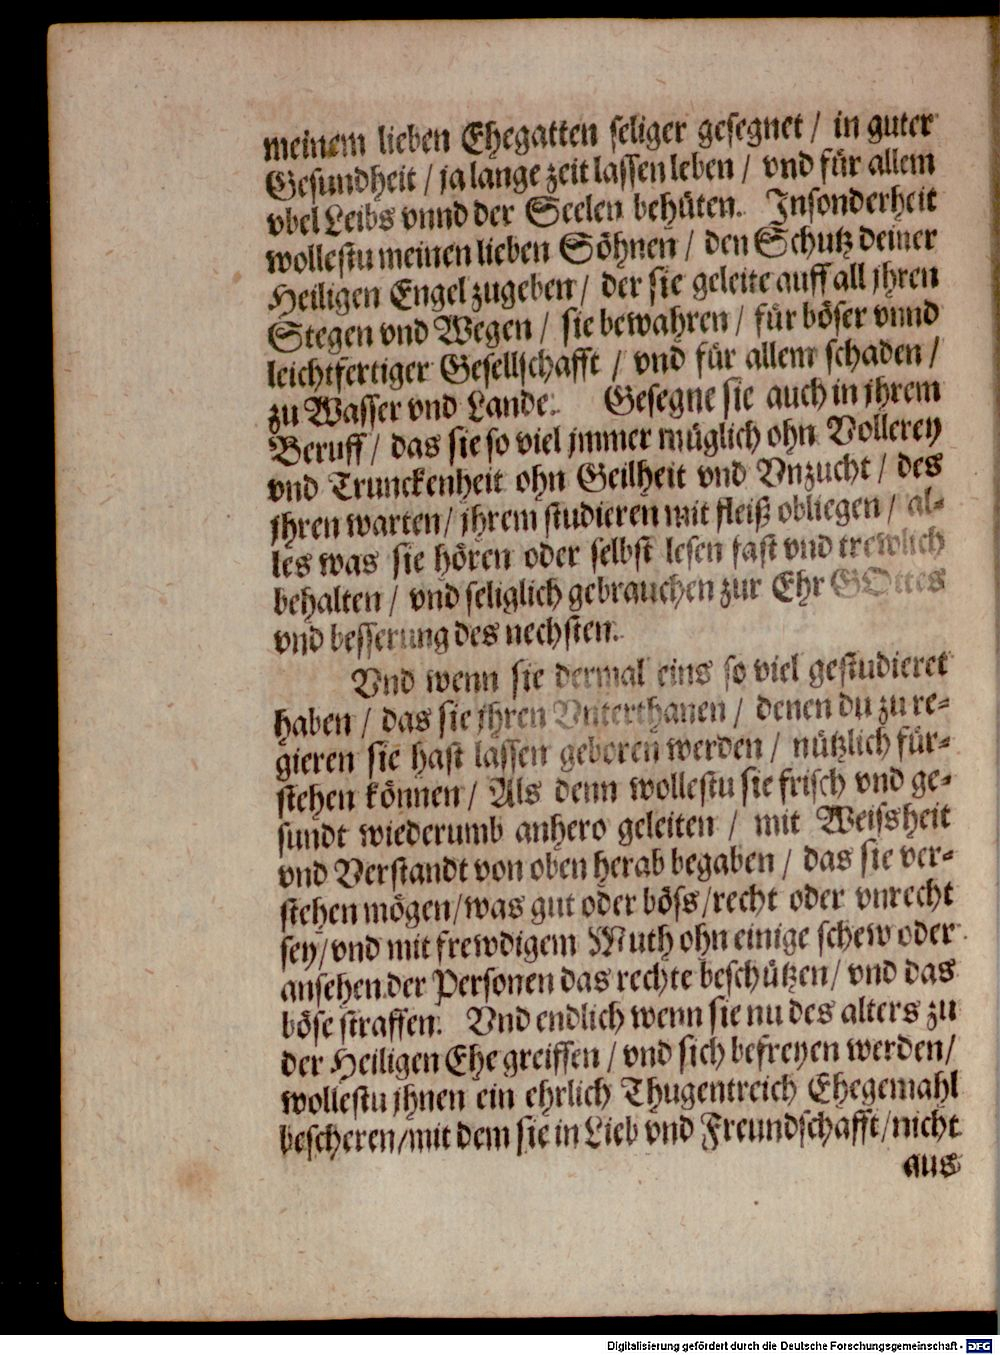 meinem lieben Ehegatten seliger gesegnet / in guter
Gesundheit / ja lange zeit lassen leben / vnd für allem
vbel Leibs vnnd der Seelen behüten. Insonderheit
wollestu meinen lieben Söhnen / den Schutz deiner
Heiligen Engel zugeben / der sie geleite auff all jhren
Stegen vnd Wegen / sie bewahren / für böser vnnd
leichtfertiger Gesellschafft / vnd für allem schaden /
zu Wasser vnd Lande. Gesegne sie auch in jhrem
Beruff / das sie so viel jmmer müglich ohn Vollerey
vnd Trunckenheit ohn Geilheit vnd Vnzucht / des
jhren warten / jhrem studieren mit fleiß obliegen / al-
les was sie hören oder selbst lesen fast vnd trewlich
behalten / vnd seliglich gebrauchen zur Ehr GOttes
vnd besserung des nechsten.
Vnd wenn sie dermal eins so viel gestudieret
haben / das sie jhren Vnterthanen / denen du zu re-
gieren sie hast lassen geboren werden / nützlich für-
stehen können / Als denn wollestu sie frisch vnd ge-
sundt wiederumb anhero geleiten / mit Weissheit
vnd Verstandt von oben herab begaben / das sie ver-
stehen mögen / was gut oder böss / recht oder vnrecht
sey / vnd mit frewdigem Muth ohn einige schew oder
ansehen der Personen das rechte beschützen / vnd das
böse straffen. Vnd endlich wenn sie nu des alters zu
der Heiligen Ehe greiffen / vnd sich befreyen werden /
wollestu jhnen ein ehrlich Thugentreich Ehegemahl
bescheren / mit dem sie in Lieb vnd Freundschafft / nicht
aus
Digitalisierung gefördert durch die Deutsche Forschungsgemeinschaft - DFG